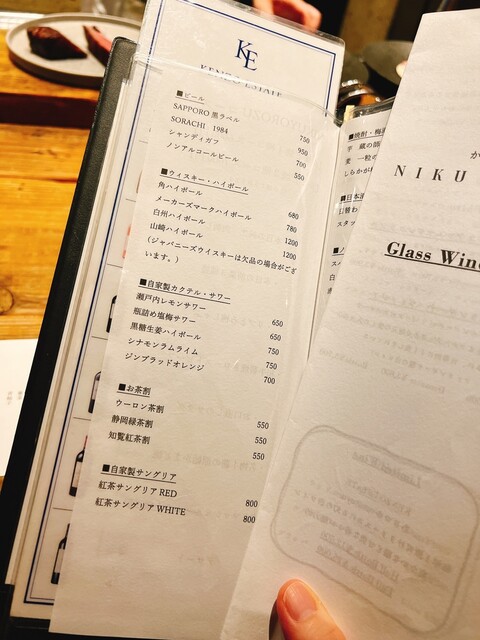 KE
KENZO ESTATE
■ビール
SAPPORO 黒ラベル 750
SORACHI 1984 950
シャンディガフ 700
ノンアルコールビール 550
■ウィスキー・ハイボール
角ハイボール 680
メーカーズマークハイボール 780
白州ハイボール 1200
山崎ハイボール 1200
(ジャパニーズウイスキーは欠品の場合がござ
います。)
■自家製カクテル・サワー
瀬戸内レモンサワー 650
瓶詰め塩梅サワー 650
黒糖生姜ハイボール 750
シナモンラムライム 750
ジンブラッドオレンジ 700
■お茶割
ウーロン茶割 550
静岡緑茶割 550
知覧紅茶割 550
■自家製サングリア
紅茶サングリア RED 800
紅茶サングリア WHITE 800
■焼酎・梅
■日本
NIKU
Glass Wine